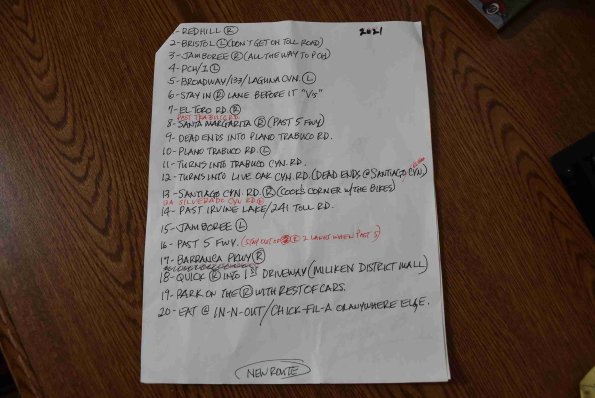 1-REDHILL Ⓡ
2021
2-BRISTOL Ⓛ (DON'T GET ON TOLL ROAD)
3-JAMBOREE Ⓡ (ALL THE WAY TO PCH)
4-PCH/1 Ⓛ
5-BROADWAY/133/LAGUNA CYN. Ⓛ
6-STAY IN Ⓡ LANE BEFORE IT "V's"
7-EL TORO RD. Ⓡ
PAST TRABUCO RD
8-SANTA MARGARITA Ⓡ (PAST 5 FWY)
9-DEAD ENDS INTO PLANO TRABUCO RD.
10-PLANO TRABUCO RD Ⓛ
11-TURNS INTO TRABUCO CYN. RD.
12-TURNS INTO LIVE OAK CYN. RD. (DEAD ENDS @ SANTIAGO CYN)
13-SANTIAGO CYN. RD. Ⓡ (COOK'S CORNER W/THE BIKES)
SILVERADO CYN RD
14-PAST IRVINE LAKE/241 TOLL RD.
15-JAMBOREE Ⓛ
16-PAST 5 FWY. (STAY OUT OF Ⓡ 2 LANES WHEN PAST 5)
17-BARRANCA PKWY Ⓡ
18-QUICK Ⓡ INTO 1ST DRIVEWAY (MILLIKEN DISTRICT MALL)
19-PARK ON THE Ⓡ WITH REST OF CARS.
20-EAT @ IN-N-OUT/CHICK-FIL-A OR ANYWHERE ELSE.
NEW ROUTE